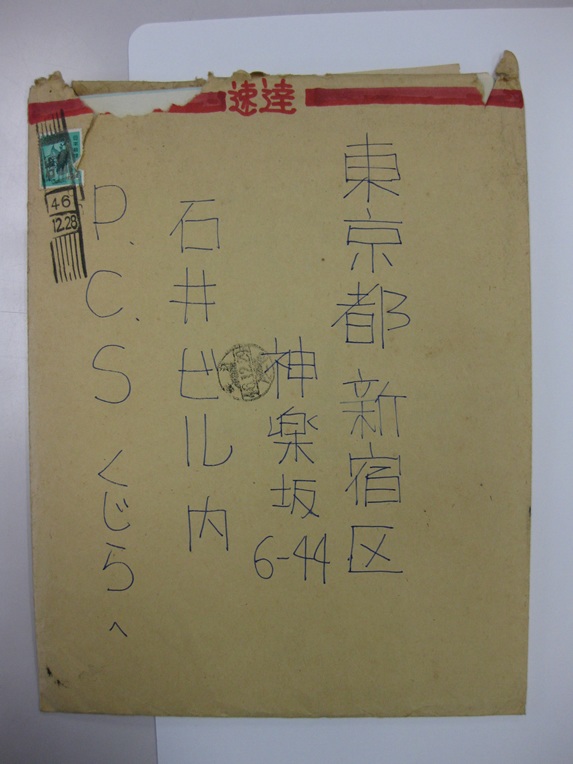 速達
東京都新宿区
神楽坂
6-44
石井ビル内
P.C.S くじらへ
46
12.28